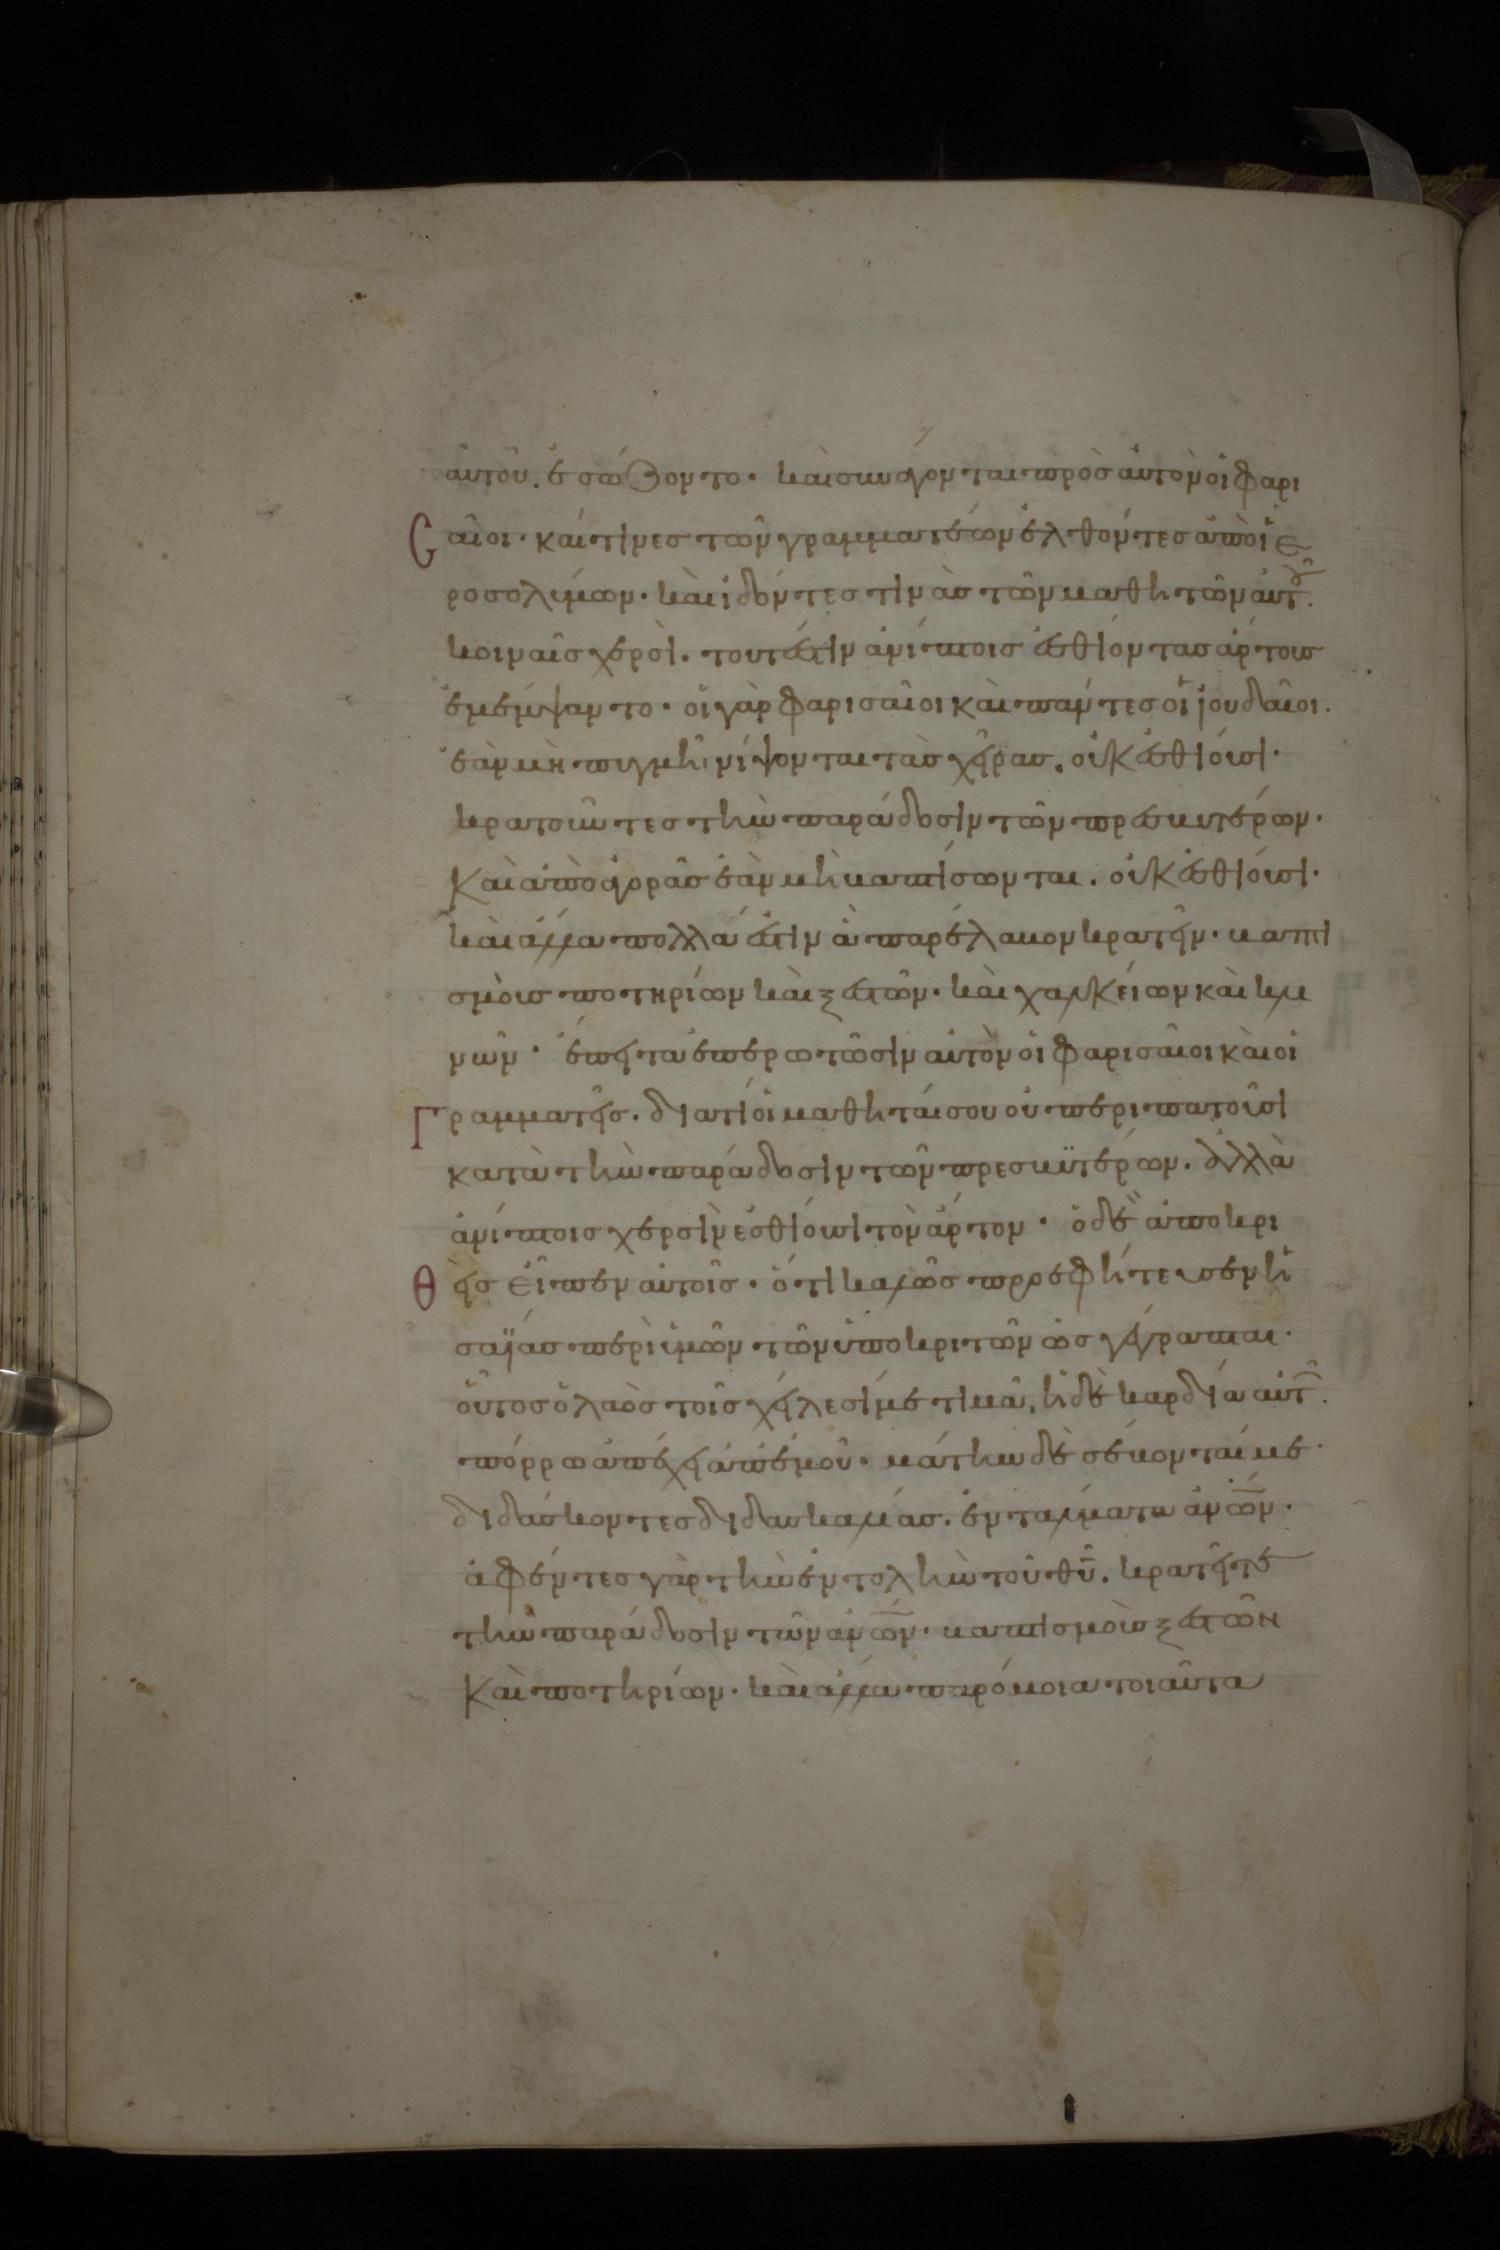 αὐτοῦ. ἐσώζοντο· καὶ συνάγονται πρὸς αὐτὸν οἱ φαρι
Cαῖοι· καί τινες τῶν γραμματέων ἐλθόντες ἀπὸ ἱε
ροσολύμων· καὶ ἰδόντες τινὰς τῶν μαθητῶν αὐτοῦ.
κοιναῖς χερσὶ. τουτέστιν ἀνίπτοις ἐσθίοντας ἄρτους
ἐμέμψαντο· οἱ γὰρ φαρισαῖοι καὶ πάντες οἱ ἰουδαῖοι.
ἐὰν μὴ πυγμῆ νίψονται τὰς χεῖρας. οὐκ ἐσθίουσι·
κρατοῦντες τὴν παράδοσιν τῶν πρεσβυτέρων·
Καὶ ἀπὸ ἀγορᾶς ἐὰν μὴ βαπτίσωνται. οὐκ ἐσθίουσι·
καὶ ἄλλα πολλά ἐστιν ἃ παρέλαβον κρατεῖν· βαπτι
σμοὺς ποτηρίων καὶ ξεστῶν· καὶ χαλκείων καὶ κλι
νῶν· ἔπειτα ἐπερωτῶσιν αὐτὸν οἱ φαρισαῖοι καὶ οἱ
Γραμματεῖς. διατί οἱ μαθηταί σου οὐ περιπατοῦσι
κατὰ τὴν παράδοσιν τῶν πρεσβϋτέρων. ἀλλὰ
ἀνίπτοις χερσὶν ἐσθίουσι τὸν ἄρτον· ὁ δὲ ἀποκρι
Θεὶς εἶπεν αὐτοῖς· ὅτι καλῶς προεφήτευσεν ἡ
σαΐας περὶ ὑμῶν τῶν ὑποκριτῶν ὡς γέγραπται·
οὗτος ὁ λαὸς τοῖς χείλεσί με τιμᾶ, ἡ δὲ καρδία αὐτῶν.
πόρρω ἀπέχει ἀπ' ἐμοῦ· μάτην δὲ σέβονταί με·
διδάσκοντες διδασκαλίας. ἐντάλματα ἀνω̅ν·
ἀφέντες γὰρ τὴν ἐντολὴν τοῦ θυ̅. κρατεῖτε
τὴν παράδοσιν τῶν ἀνω̅ν· βαπτισμοὺς ξεστῶν
Καὶ ποτηρίων· καὶ ἄλλα παρόμοια τοιαῦτα